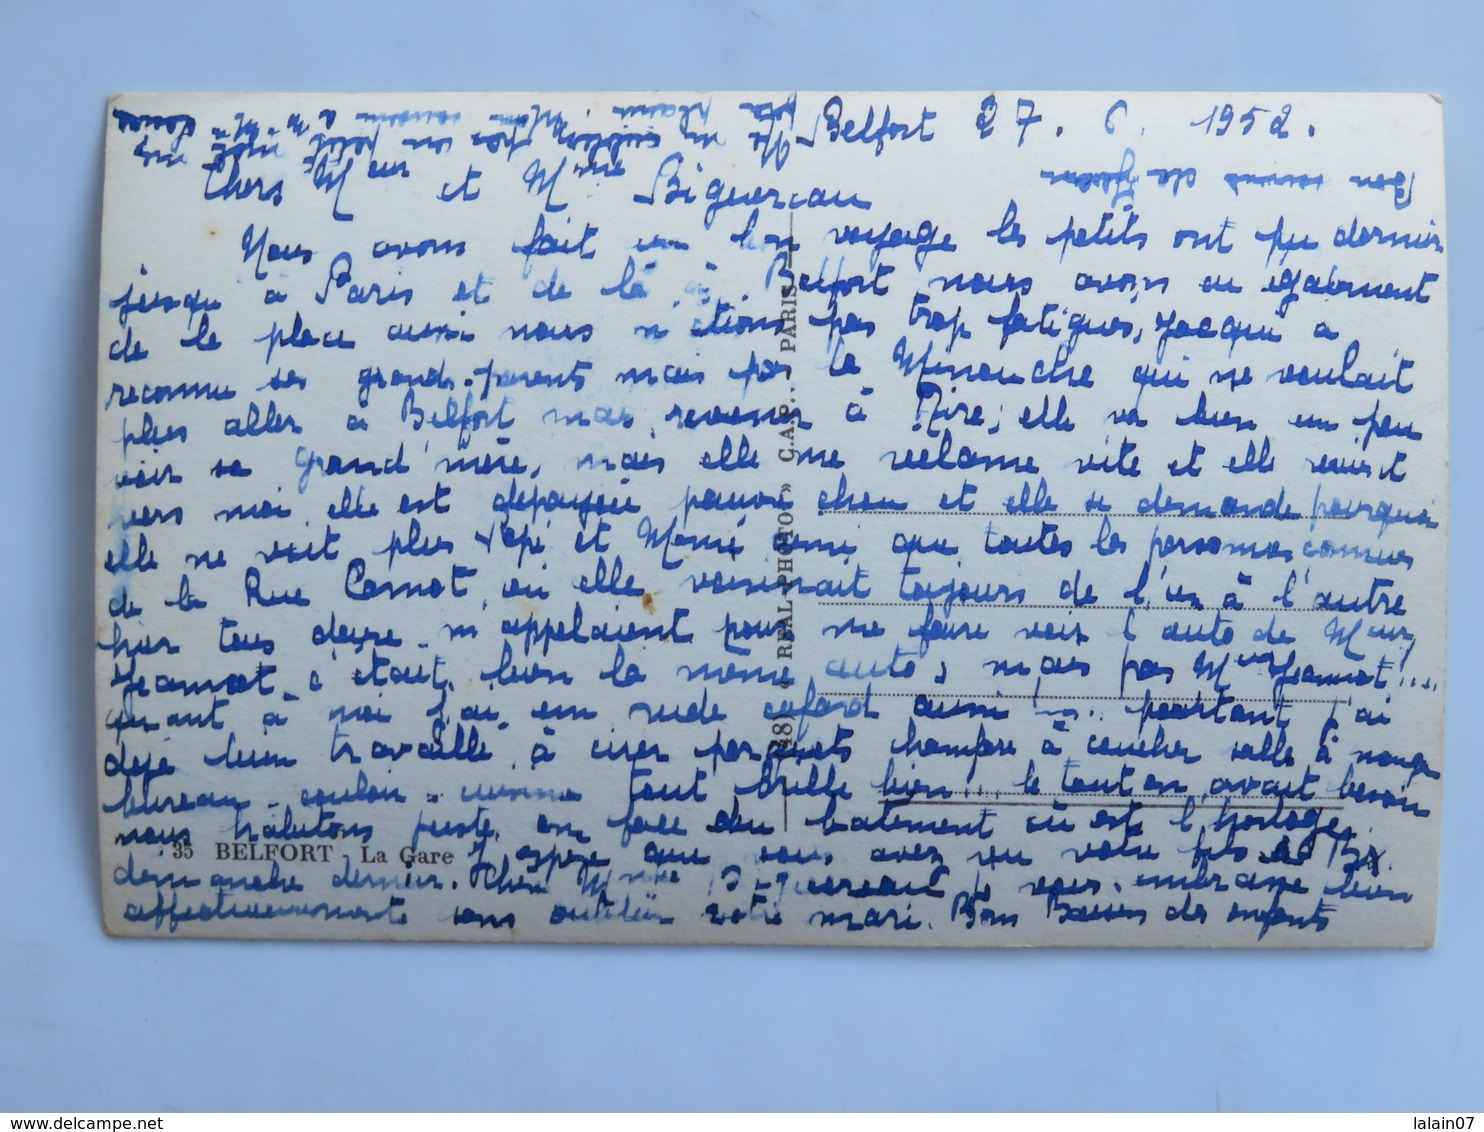 Belfort 27. 6. 1952.
Chers Meur et Mme Biguereau
Nous avons fait un bon voyage les petits ont pu dormir
jusqu'à Paris et de là à Belfort nous avons eu également
de la place aussi nous n'étions pas trop fatigués, Jacqui a
reconnu ses grands-parents mais pas la Minouche qui ne voulait
plus aller à Belfort mais revenir à Niré; elle va bien un peu
voir sa grand'mère, mais elle me réclame vite et elle revient
vers moi elle est dépaysée pauvre chou et elle se demande pourquoi
elle ne voit plus Pépé et Mémé ainsi que toutes les personnes connues
de la Rue Carnot, où elle voisinait toujours de l'un à l'autre
hier tous deux m'appelaient pour me faire voir l'auto de Meur
Jeannot c'était bien la même auto, mais pas Meur Jeannot!...
quant à moi j'ai un rude cafard aussi ... pourtant j'ai
déjà bien travaillé à cirer parquets chambre à coucher salle à manger
bureau - couloir - cuisine tout brille bien... le tout en avait besoin
nous habitons juste en face du batement où est l'horloge.
35 BELFORT La Gare
J'espère que vous avez vu votre fils de Bx.
dimanche dernier. Chère Mme Biguereau je vous embrasse bien
affectueusement sans oublier votre mari. Bons Baisers des enfants
(48) « REAL-PHOTO » C.A.P. - PARIS
Bon